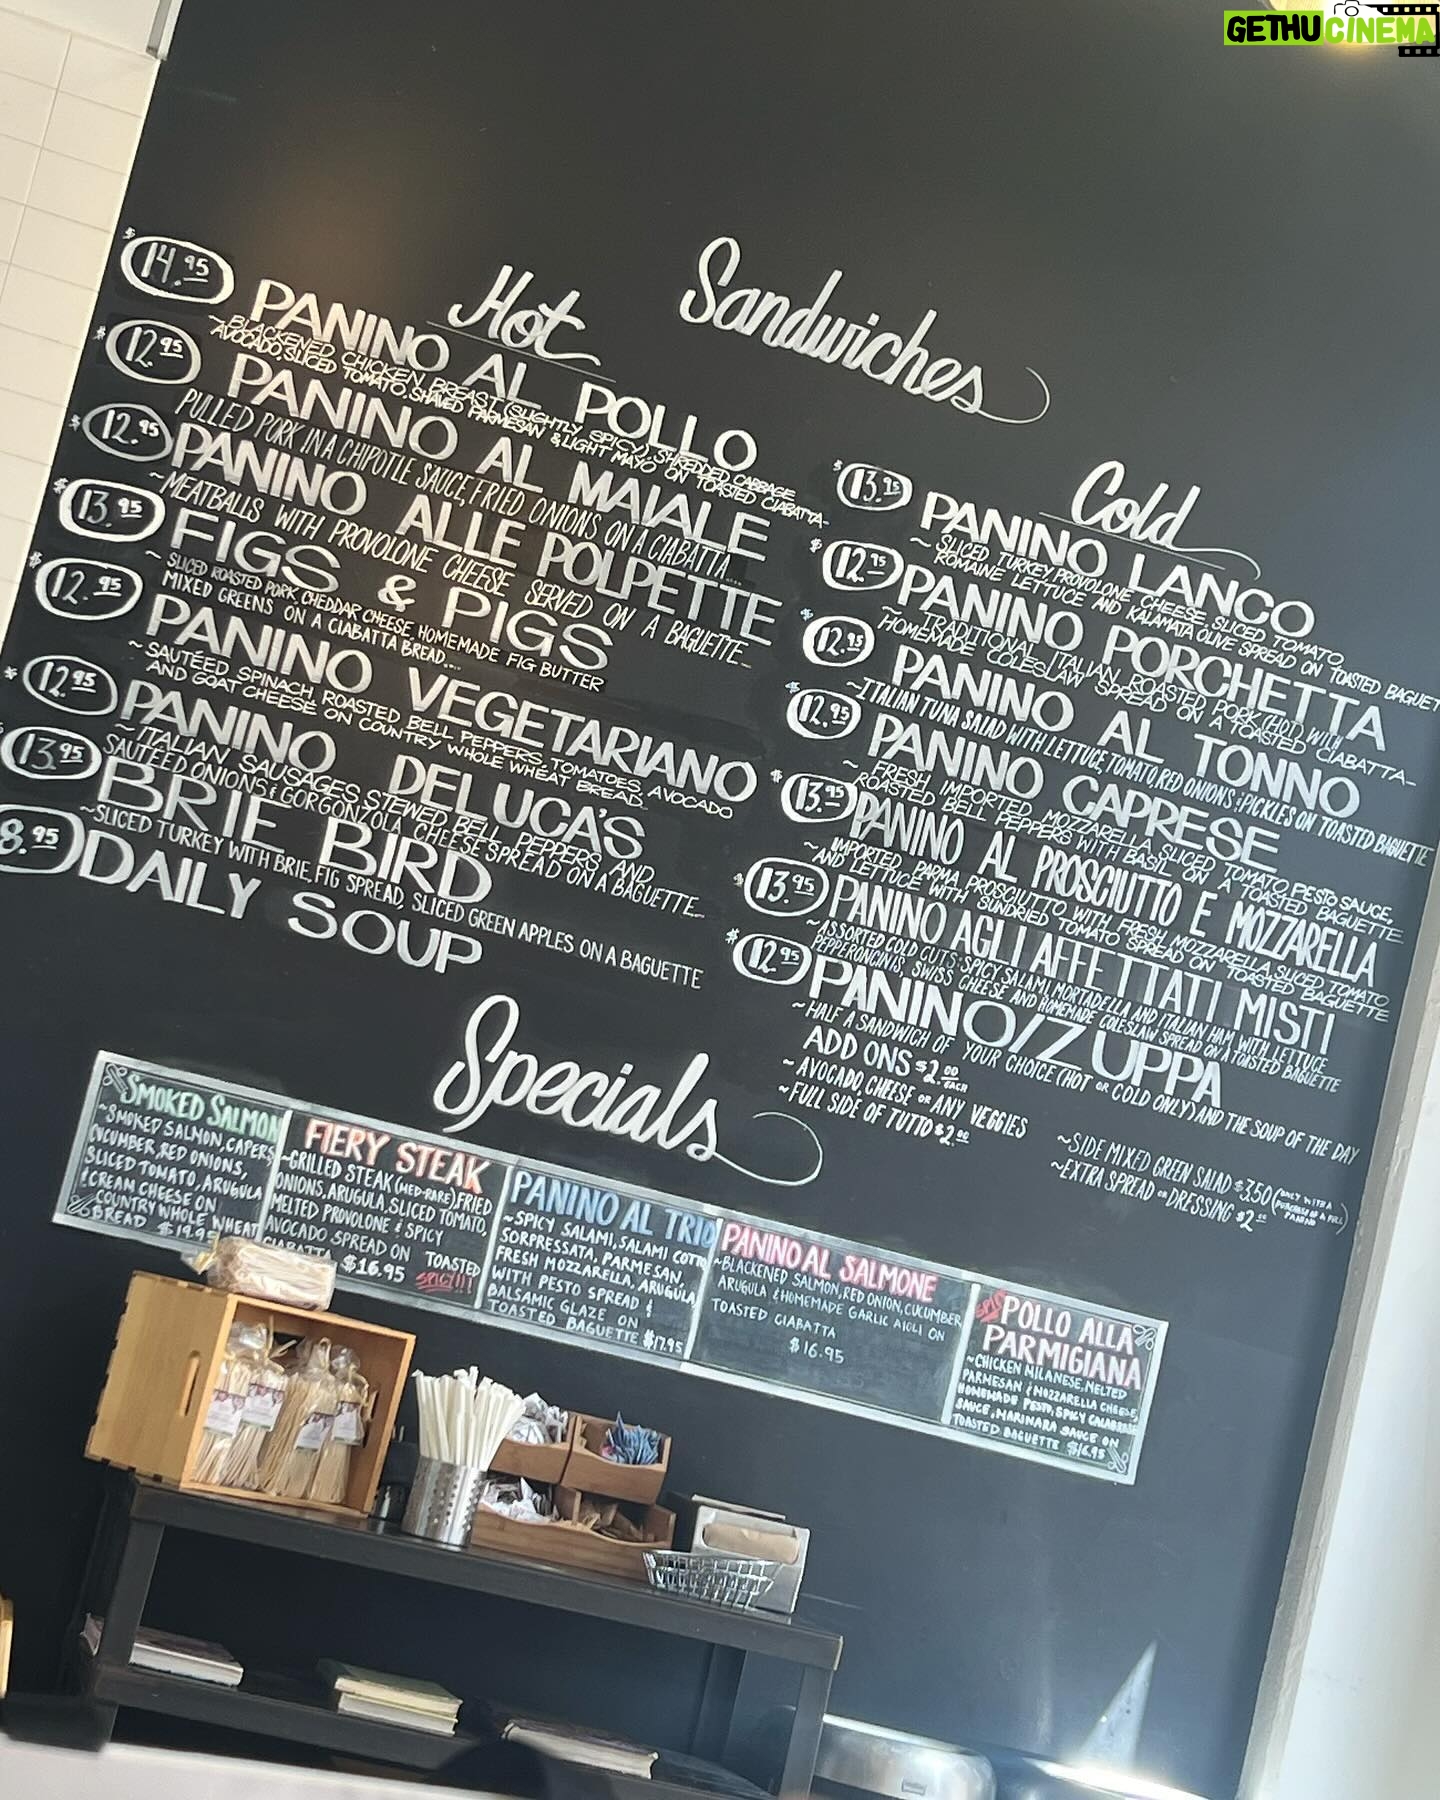 GETHUCINEMA
Sandwiches
Hot
$14.95
PANINO AL POLLO
~BLACKENED CHICKEN BREAST (SLIGHTLY SPICY), SHREDDED CABBAGE
AVOCADO, SLICED TOMATO, SHAVED PARMESAN & LIGHT MAYO ON TOASTED CIABATTA~
$12.95
PANINO AL MAIALE
PULLED PORK IN A CHIPOTLE SAUCE, FRIED ONIONS ON A CIABATTA...
$12.95
PANINO ALLE POLPETTE
~MEATBALLS WITH PROVOLONE CHEESE SERVED ON A BAGUETTE...
$13.95
FIGS & PIGS
~ SLICED ROASTED PORK, CHEDDAR CHEESE, HOMEMADE FIG BUTTER
MIXED GREENS ON A CIABATTA BREAD...
$12.95
PANINO VEGETARIANO
~ SAUTÉED SPINACH, ROASTED BELL PEPPERS, TOMATOES, AVOCADO
AND GOAT CHEESE ON COUNTRY WHOLE WHEAT BREAD~
12.95
PANINO DELUCA'S
~ITALIAN SAUSAGES, STEWED BELL PEPPERS AND
SAUTÉED ONIONS & GORGONZOLA CHEESE SPREAD ON A BAGUETTE...
13.95
BRIE BIRD
~SLICED TURKEY WITH BRIE, FIG SPREAD, SLICED GREEN APPLES ON A BAGUETTE
8.95
DAILY SOUP
Cold
$13.95
PANINO LANCO
~ SLICED TURKEY, PROVOLONE CHEESE, SLICED TOMATO
ROMAINE LETTUCE AND KALAMATA OLIVE SPREAD ON TOASTED BAGUET
$12.95
PANINO PORCHETTA
~TRADITIONAL ITALIAN ROASTED PORK (HOT) WITH
HOMEMADE COLESLAW SPREAD ON A TOASTED CIABATTA~
$12.95
PANINO AL TONNO
~ITALIAN TUNA SALAD WITH LETTUCE, TOMATO, RED ONIONS & PICKLES ON TOASTED BAGUETTE
$12.95
PANINO CAPRESE
~ FRESH IMPORTED MOZZARELLA, SLICED TOMATO, PESTO SAUCE,
ROASTED BELL PEPPERS WITH BASIL ON A TOASTED BAGUETTE~
$13.95
PANINO AL PROSCIUTTO E MOZZARELLA
~ IMPORTED PARMA PROSCIUTTO WITH FRESH MOZZARELLA, SLICED TOMATO
AND LETTUCE WITH SUNDRIED TOMATO SPREAD ON TOASTED BAGUETTE
$13.95
PANINO AGLI AFFETTATI MISTI
~ASSORTED COLD CUTS: SPICY SALAMI, MORTADELLA AND ITALIAN HAM WITH LETTUCE
PEPPERONCINIS, SWISS CHEESE AND HOMEMADE COLESLAW SPREAD ON A TOASTED BAGUETTE
$12.95
PANINO/ZUPPA
~ HALF A SANDWICH OF YOUR CHOICE (HOT OR COLD ONLY) AND THE SOUP OF THE DAY
ADD ONS $2.00 EACH
~ AVOCADO, CHEESE OR ANY VEGGIES
~ FULL SIDE OF TUTTO $2.00
~SIDE MIXED GREEN SALAD $3.50 (ONLY WITH A PURCHASE OF A FULL PANINO)
~EXTRA SPREAD OR DRESSING $2.00
Specials
SMOKED SALMON
~SMOKED SALMON, CAPERS,
CUCUMBER, RED ONIONS,
SLICED TOMATO, ARUGULA
& CREAM CHEESE ON
COUNTRY WHOLE WHEAT
BREAD $19.95
FIERY STEAK
~GRILLED STEAK (MED-RARE), FRIED
ONIONS, ARUGULA, SLICED TOMATO,
MELTED PROVOLONE & SPICY
AVOCADO SPREAD ON TOASTED
CIABATTA $16.95 SPICY!!!
PANINO AL TRIO
~SPICY SALAMI, SALAMI COTTO
SORPRESSATA, PARMESAN,
FRESH MOZZARELLA, ARUGULA,
WITH PESTO SPREAD &
BALSAMIC GLAZE ON
TOASTED BAGUETTE $17.95
PANINO AL SALMONE
~BLACKENED SALMON, RED ONION, CUCUMBER
ARUGULA & HOMEMADE GARLIC AIOLI ON
TOASTED CIABATTA
$16.95
SPICY
POLLO ALLA
PARMIGIANA
~CHICKEN MILANESE, MELTED
PARMESAN & MOZZARELLA CHEESE,
HOMEMADE PESTO, SPICY CALABRESE
SAUCE, MARINARA SAUCE ON
TOASTED BAGUETTE $16.95